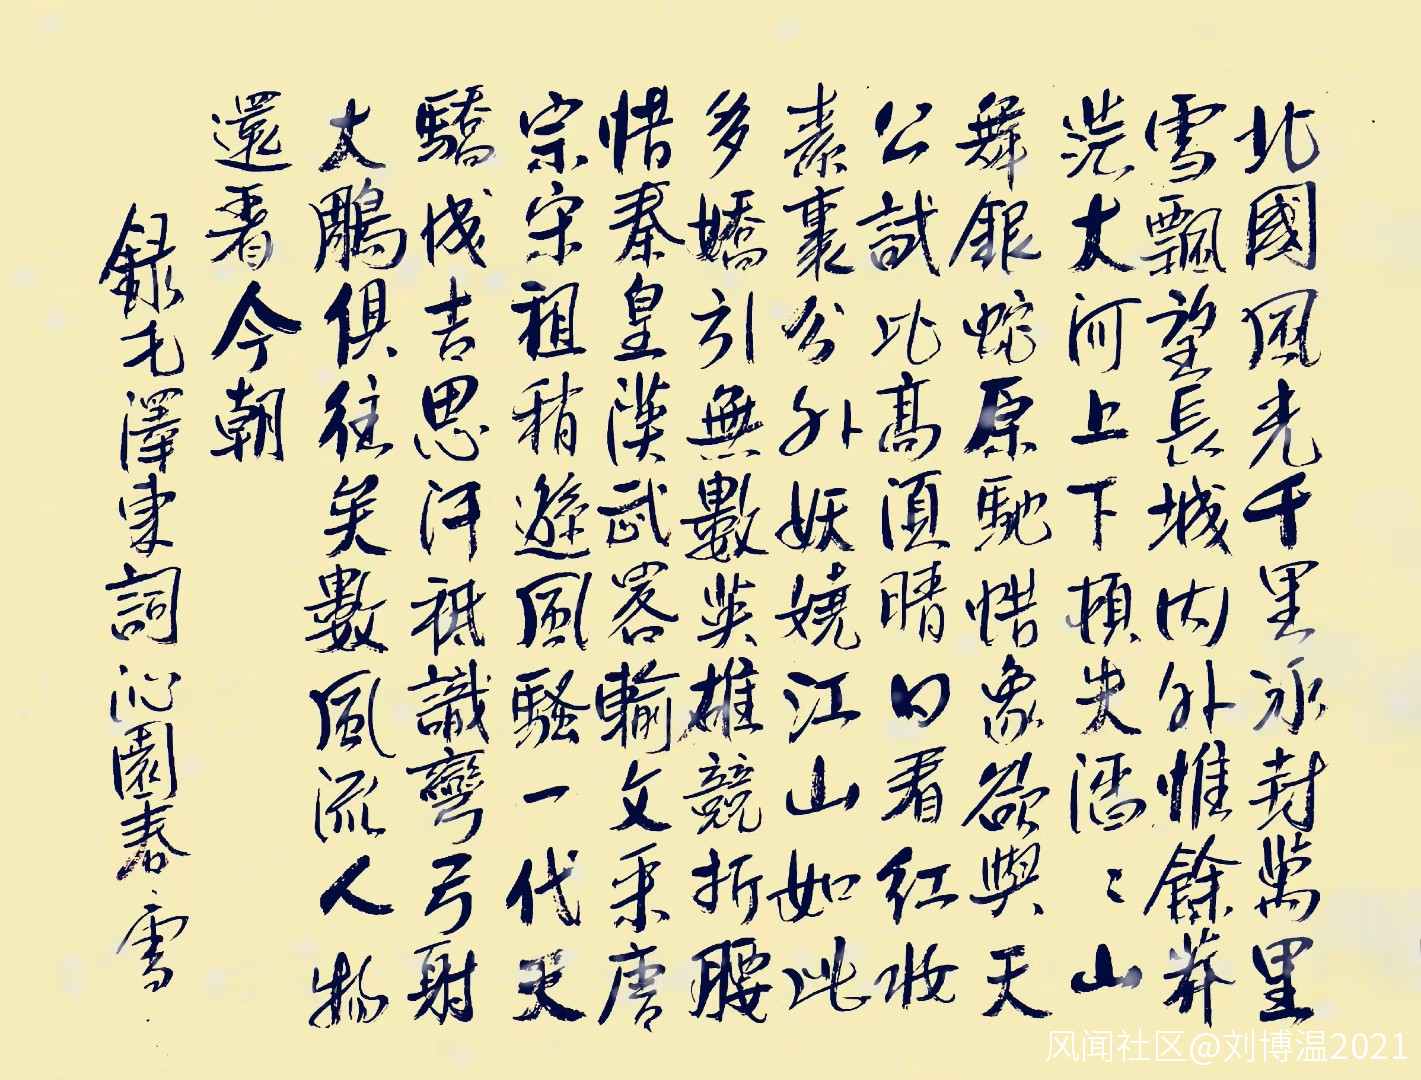 北國風光千里冰封萬里
雪飄望長城內外惟餘莽
茫大河上下頓失滔〻山
舞銀蛇原馳象欲與天
公試比高須晴日看紅妆
素裹分外妖嬈江山如此
多嬌引無數英雄競折腰
惜秦皇漢武畧輸文采唐
宗宋祖稍遜風騷一代天
驕成吉思汗祗識彎弓射
大鵰俱往矣數風流人物
還看今朝
錄毛澤東詞沁園春雪
风闻社区@刘博温2021